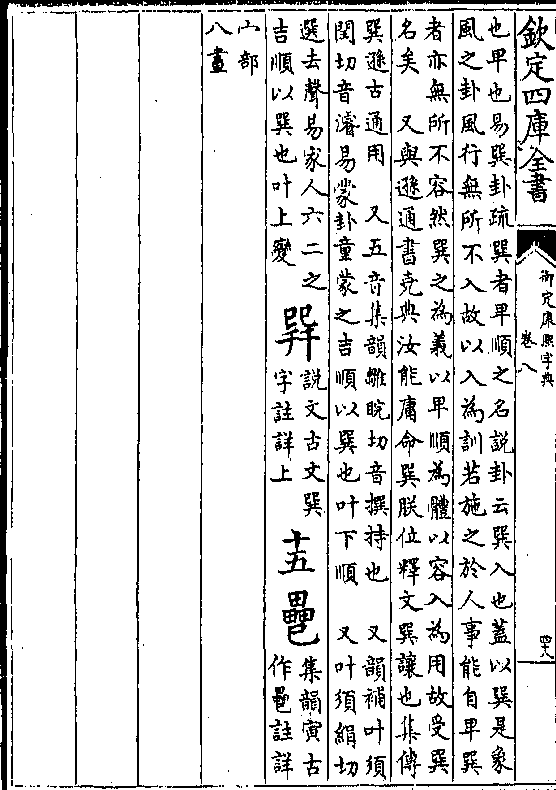 欽定四庫全書
御定康熙字典
卷八
也卑也易巽卦疏巽者卑順之名說卦云巽入也蓋以巽是象
風之卦風行無所不入故以入為訓若施之於人事能自卑巽
者亦無所不容然巽之為義以卑順為體以容入為用故受巽
名矣　又與遜通書堯典汝能庸命巽朕位釋文巽讓也集傳
巽遜古通用　又五音集韻雛睆切音撰持也　又韻補叶須
閏切音濬易蒙卦童蒙之吉順以巽也叶下順　又叶須絹切
選去聲易家人六二之
吉順以巽也叶上變
說文古文巽
字註詳上
十五
集韻寅古
作註詳
宀部
八畫